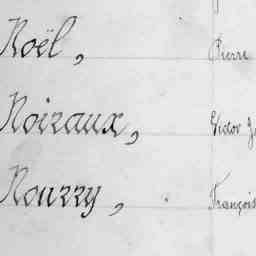 Noël, Pierre
Noizaux, Victor J
Nourry, François